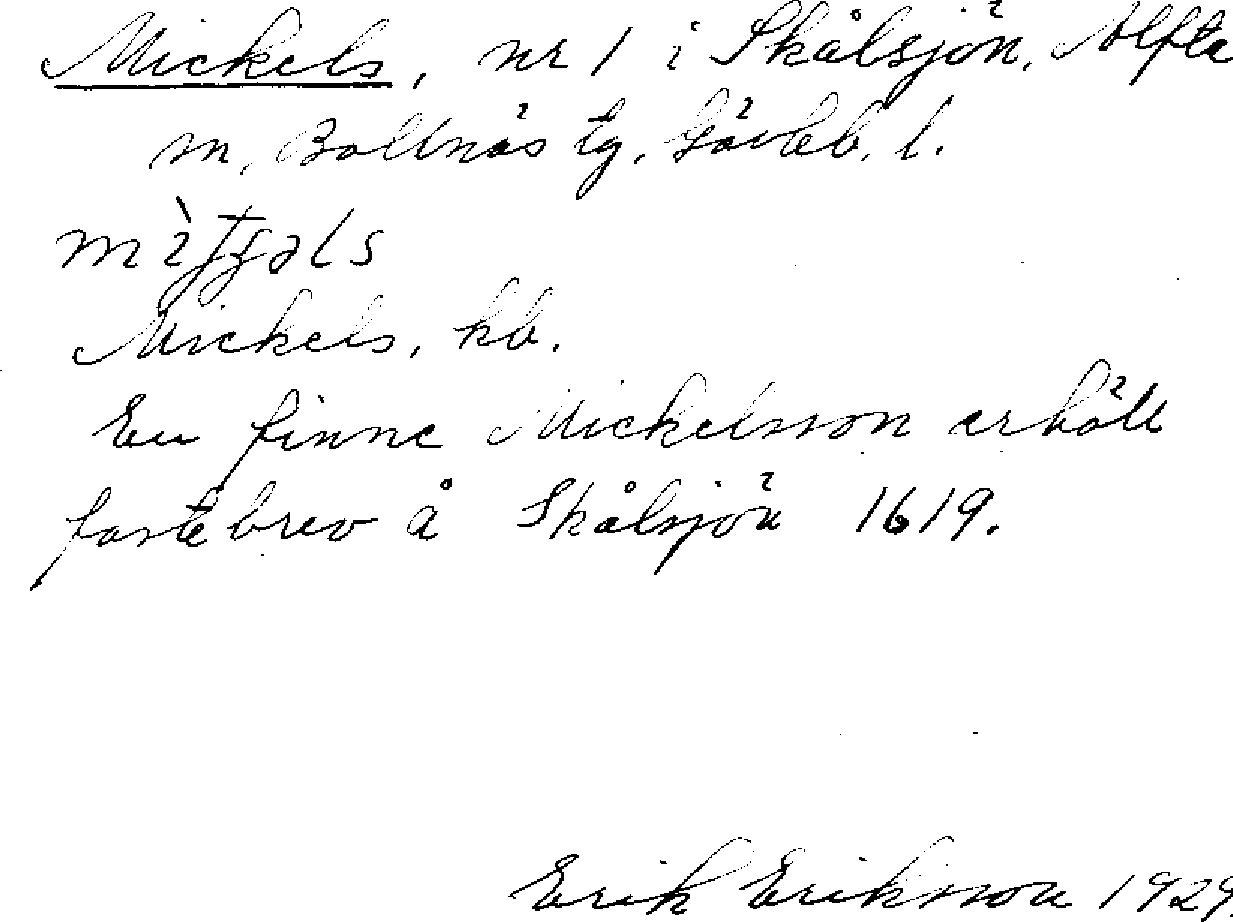 Mickels, nr 1 i Skålsjön, Alfta
m, Bollnäs tg, Gävleb. l.
Mickels, kb.
En finne Mickelsson erhöll
fastebrev å Skålsjön 1619.
Erik Eriksson 1929.